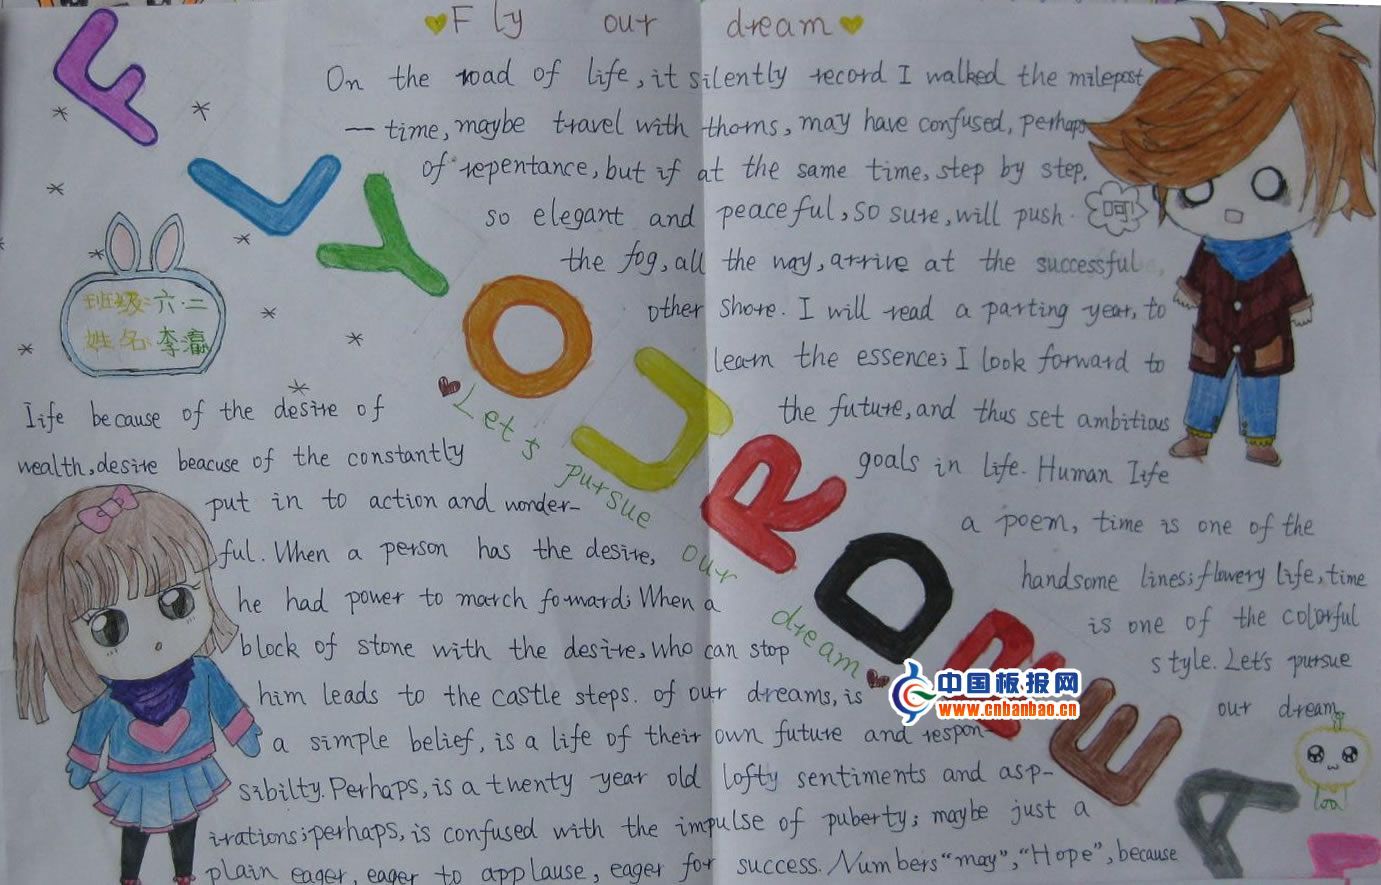 Fly our dream
On the road of life, it silently record I walked the milepost
— time, maybe travel with thorns, may have confused, perhaps
of repentance, but if at the same time, step by step,
so elegant and peaceful, so sure, will push
the fog, all the way, arrive at the successful
other shore. I will read a parting year, to
learn the essence; I look forward to
the future, and thus set ambitious
goals in life. Human life
a poem, time is one of the
handsome lines; flowery life, time
is one of the colorful
style. Let's pursue
our dream
呵!
FLY OUR DREA
Let's pursue our dream
班级:六·二
姓名:李瀛
Life because of the desire of
wealth, desire beacuse of the constantly
put in to action and wonder-
ful. When a person has the desire,
he had power to march forward; When a
block of stone with the desire, who can stop
him leads to the castle steps. of our dreams, is
a simple belief, is a life of their own future and respon-
sibilty. Perhaps, is a twenty year old lofty sentiments and asp-
irations; perhaps, is confused with the impulse of puberty; maybe just a
plain eager, eager to applause, eager for success. Numbers "may", "Hope", because
中国板报网
www.cnbanbao.cn